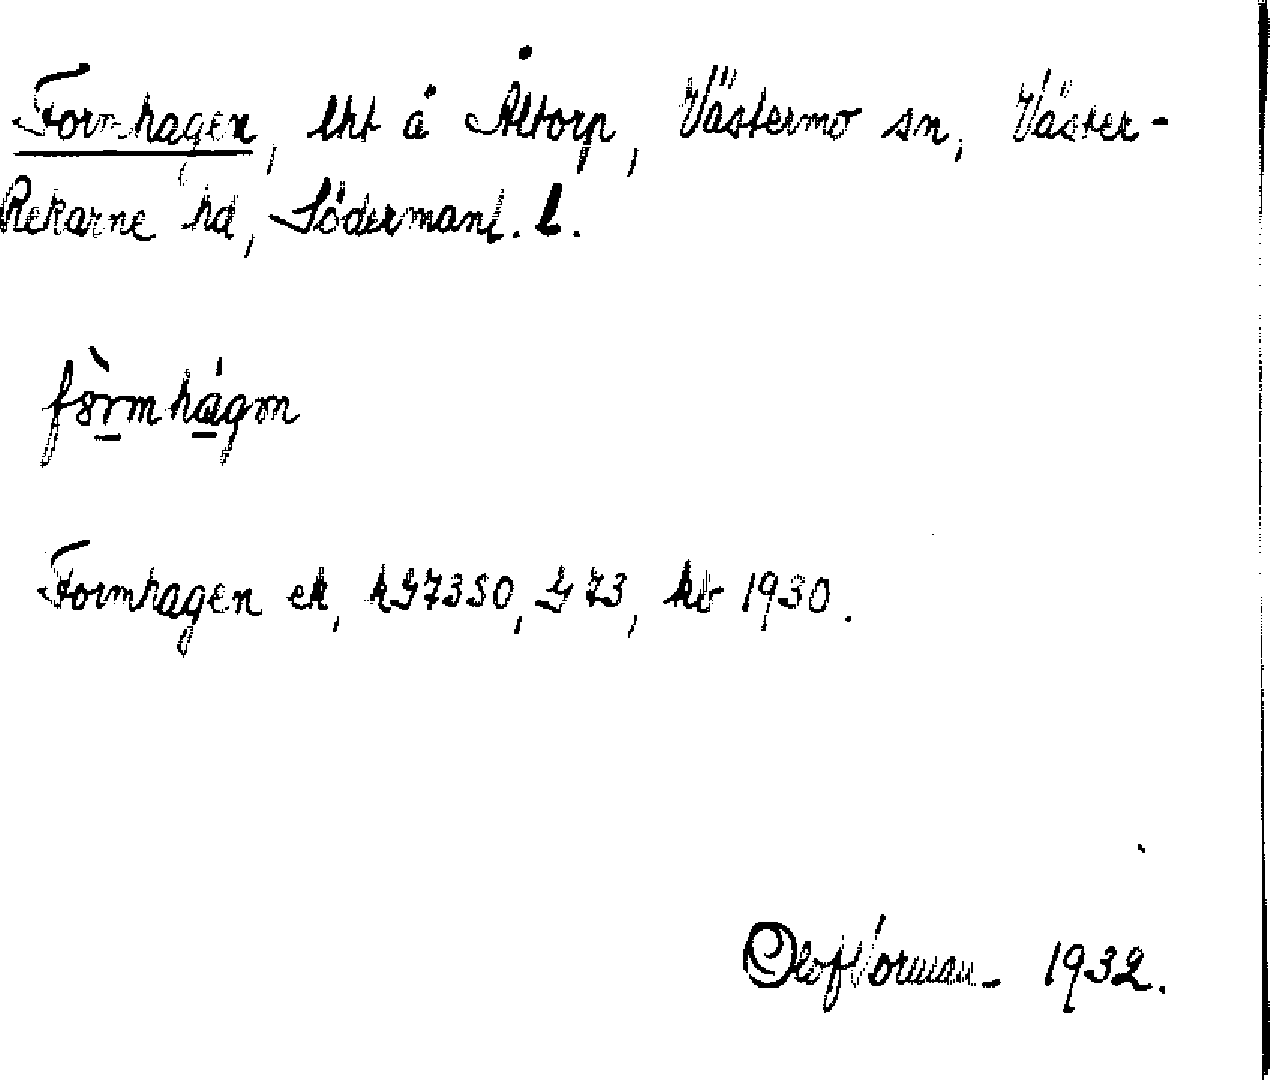 Formhagen, lht å Åltorp, Västermo sn, Väster-
Rekarne hd, Södermanl. l.
fòrmhágm
Formhagen ek, kG7350, G 73, kb 1930.
Olof Vorman - 1932.